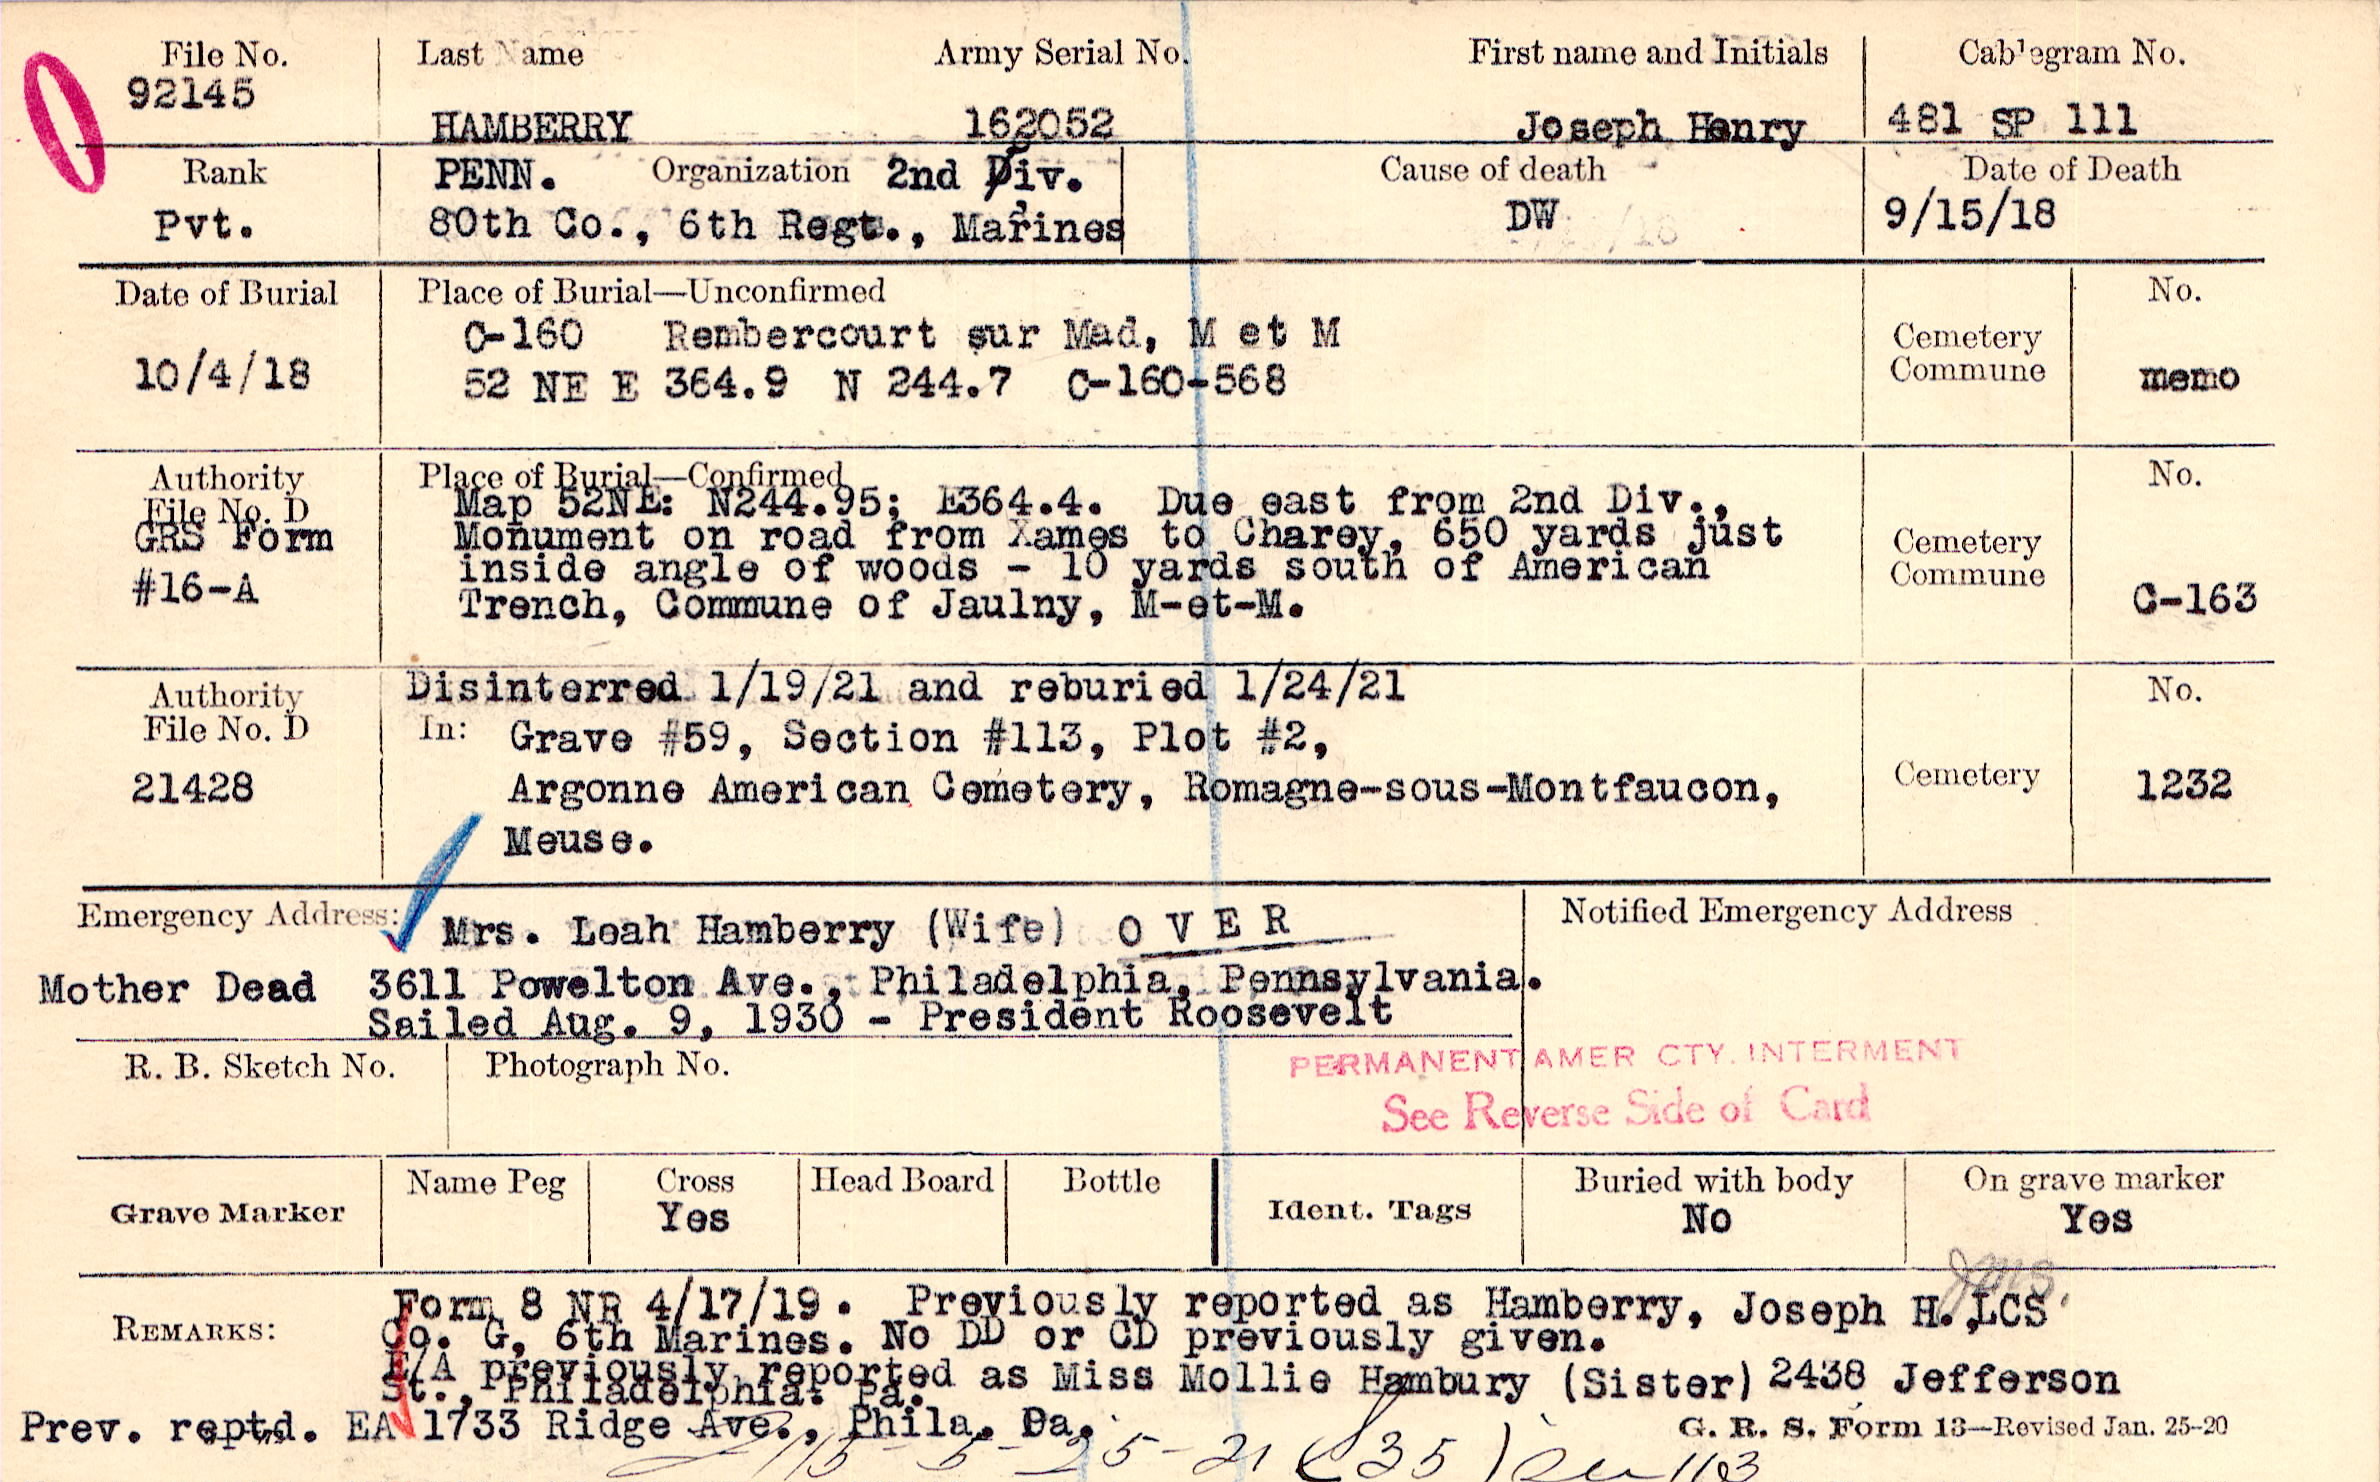 File No. Last Name Army Serial No. First name and Initials Cablegram No.
92145 HAMBERRY 162052 Joseph Henry 481 SP 111
Rank PENN. Organization 2nd Div. Cause of death Date of Death
Pvt. 80th Co., 6th Regt., Marines DW 9/15/18
Date of Burial Place of Burial—Unconfirmed No.
C-160 Rembercourt sur Mad, M et M Cemetery
10/4/18 52 NE E 364.9 N 244.7 C-160-568 Commune memo
Authority Place of Burial—Confirmed No.
File No. D Map 52NE: N244.95; E364.4. Due east from 2nd Div.,
GRS Form Monument on road from Xames to Charey, 650 yards just Cemetery
#16-A inside angle of woods - 10 yards south of American Commune
Trench, Commune of Jaulny, M-et-M. C-163
Authority Disinterred 1/19/21 and reburied 1/24/21 No.
File No. D In: Grave #59, Section #113, Plot #2,
21428 Argonne American Cemetery, Romagne-sous-Montfaucon, Cemetery 1232
Meuse.
Emergency Address: Mrs. Leah Hamberry (Wife) O V E R Notified Emergency Address
Mother Dead 3611 Powelton Ave., Philadelphia, Pennsylvania.
Sailed Aug. 9, 1930 - President Roosevelt
R. B. Sketch No. Photograph No. PERMANENT AMER CTY. INTERMENT
See Reverse Side of Card
Grave Marker Name Peg Cross Head Board Bottle Ident. Tags Buried with body On grave marker
Yes No Yes
JMS.
REMARKS: Form 8 NR 4/17/19. Previously reported as Hamberry, Joseph H. ,LCS
Co. G, 6th Marines. No DD or CD previously given.
E/A previously reported as Miss Mollie Hambury (Sister) 2438 Jefferson
St., Philadelphia. Pa.
Prev. reptd. EA 1733 Ridge Ave., Phila. Pa.
G. R. S. Form 13—Revised Jan. 25-20
5-25-21 35 113